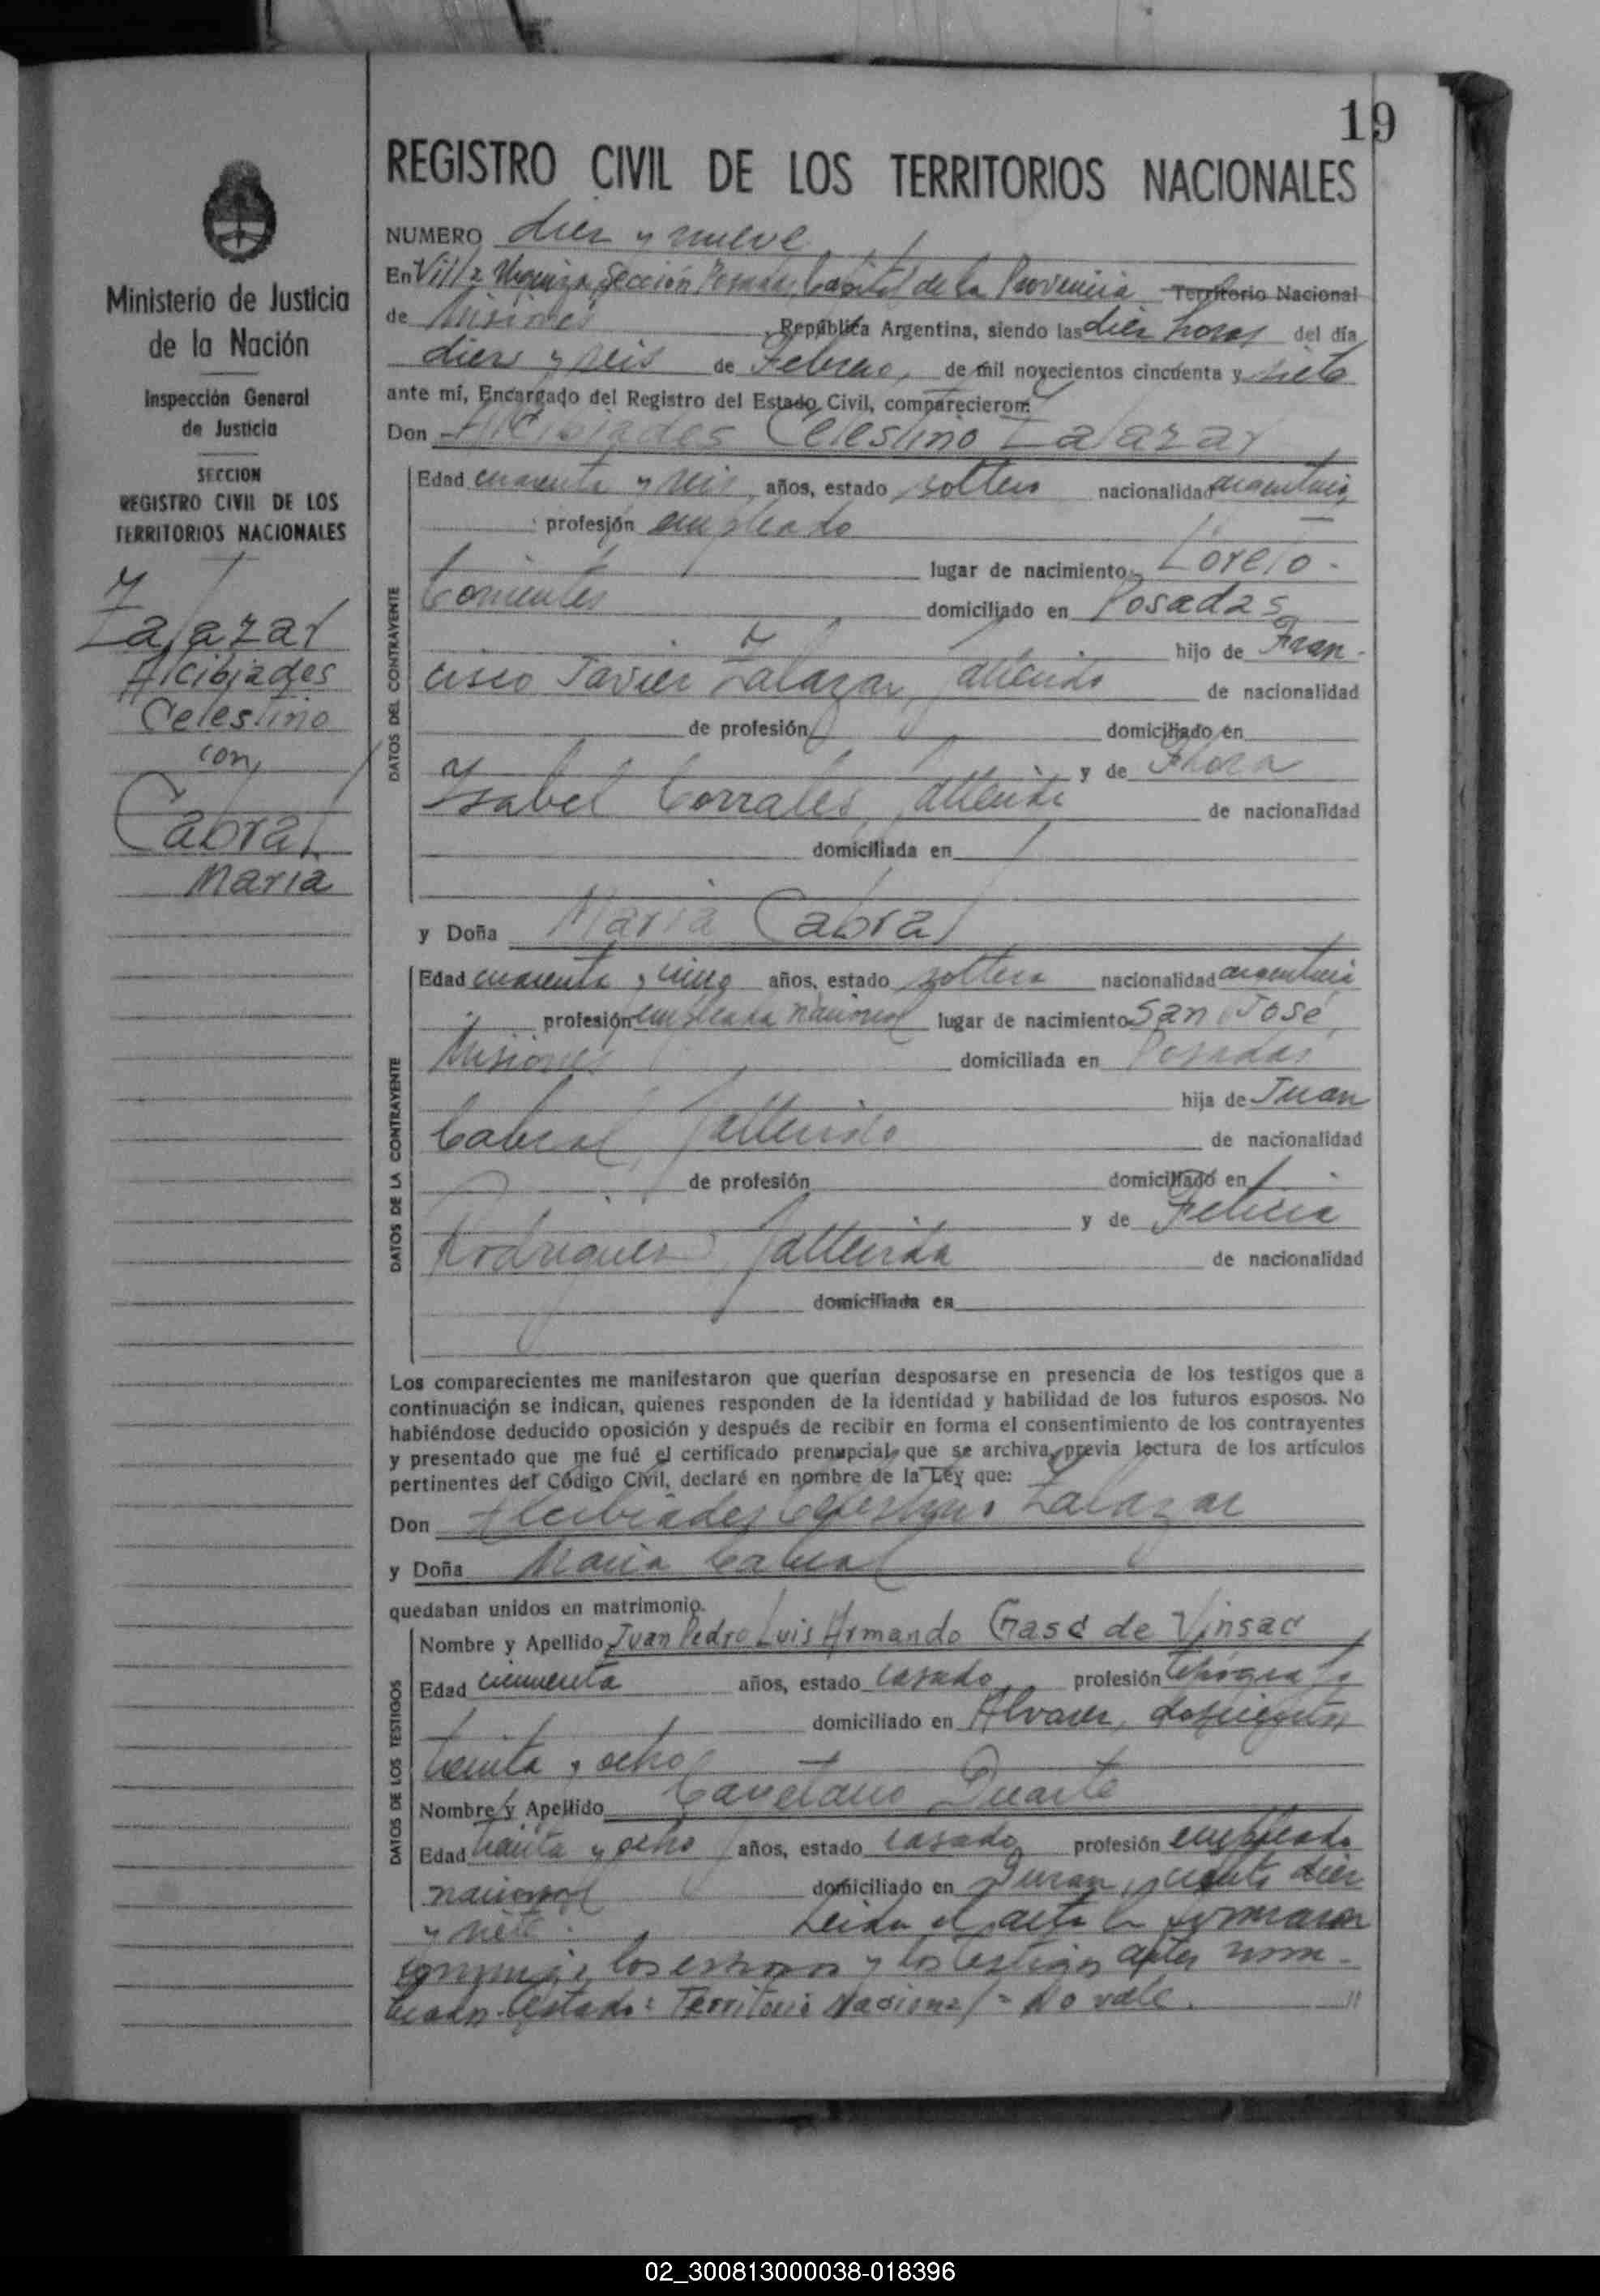 19
REGISTRO CIVIL DE LOS TERRITORIOS NACIONALES
NUMERO diez y nueve
En Villa Urquiza Sección Posadas, Capital de la Provincia Territorio Nacional
de Misiones República Argentina, siendo las diez horas del día
diez y seis de Febrero, de mil novecientos cincuenta y siete
ante mí, Encargado del Registro del Estado Civil, comparecieron:
Don Alcibiades Celestino Zalazar
Ministerio de Justicia
de la Nación
Inspección General
de Justicia
SECCION
REGISTRO CIVIL DE LOS
TERRITORIOS NACIONALES
Zalazar
Alcibiades
Celestino
con
Cabral
Maria
DATOS DEL CONTRAYENTE
Edad cuarenta y seis años, estado soltero nacionalidad argentina
profesión empleado
lugar de nacimiento Loreto -
Corrientes domiciliado en Posadas
hijo de Fran-
cisco Javier Zalazar, fallecido de nacionalidad
de profesión domiciliado en
y de Flora
Ysabel Corrales, fallecida de nacionalidad
domiciliada en
y Doña Maria Cabral
DATOS DE LA CONTRAYENTE
Edad cuarenta y cinco años, estado soltera nacionalidad argentina
profesión empleada nacional lugar de nacimiento San José,
Misiones domiciliada en Posadas
hija de Juan
Cabral, fallecido de nacionalidad
de profesión domiciliado en
y de Felicia
Rodriguez, fallecida de nacionalidad
domiciliada en
Los comparecientes me manifestaron que querían desposarse en presencia de los testigos que a
continuación se indican, quienes responden de la identidad y habilidad de los futuros esposos. No
habiéndose deducido oposición y después de recibir en forma el consentimiento de los contrayentes
y presentado que me fué el certificado prenupcial que se archiva, previa lectura de los artículos
pertinentes del Código Civil, declaré en nombre de la Ley que:
Don Alcibiades Celestino Zalazar
y Doña Maria Cabral
quedaban unidos en matrimonio.
DATOS DE LOS TESTIGOS
Nombre y Apellido Juan Pedro Luis Armando Gasc de Vinsac
Edad cincuenta años, estado casado profesión
domiciliado en Alvarez, doscientos
treinta y ocho
Nombre y Apellido Cayetano Duarte
Edad treinta y ocho años, estado casado profesión empleado
nacional domiciliado en Duran, ciento diez
y siete. Leida el acta la firmaron
conmigo, los esposos y los testigos antes nom-
brados. Testado: Territorio Nacional = No vale.
02_300813000038-018396